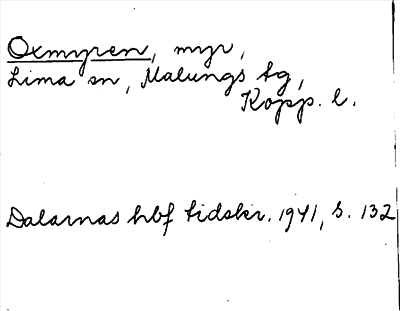 Oxmyren, myr,
Lima sn, Malungs tg,
Kopp. l.
Dalarnas hbf tidskr. 1941, s. 132